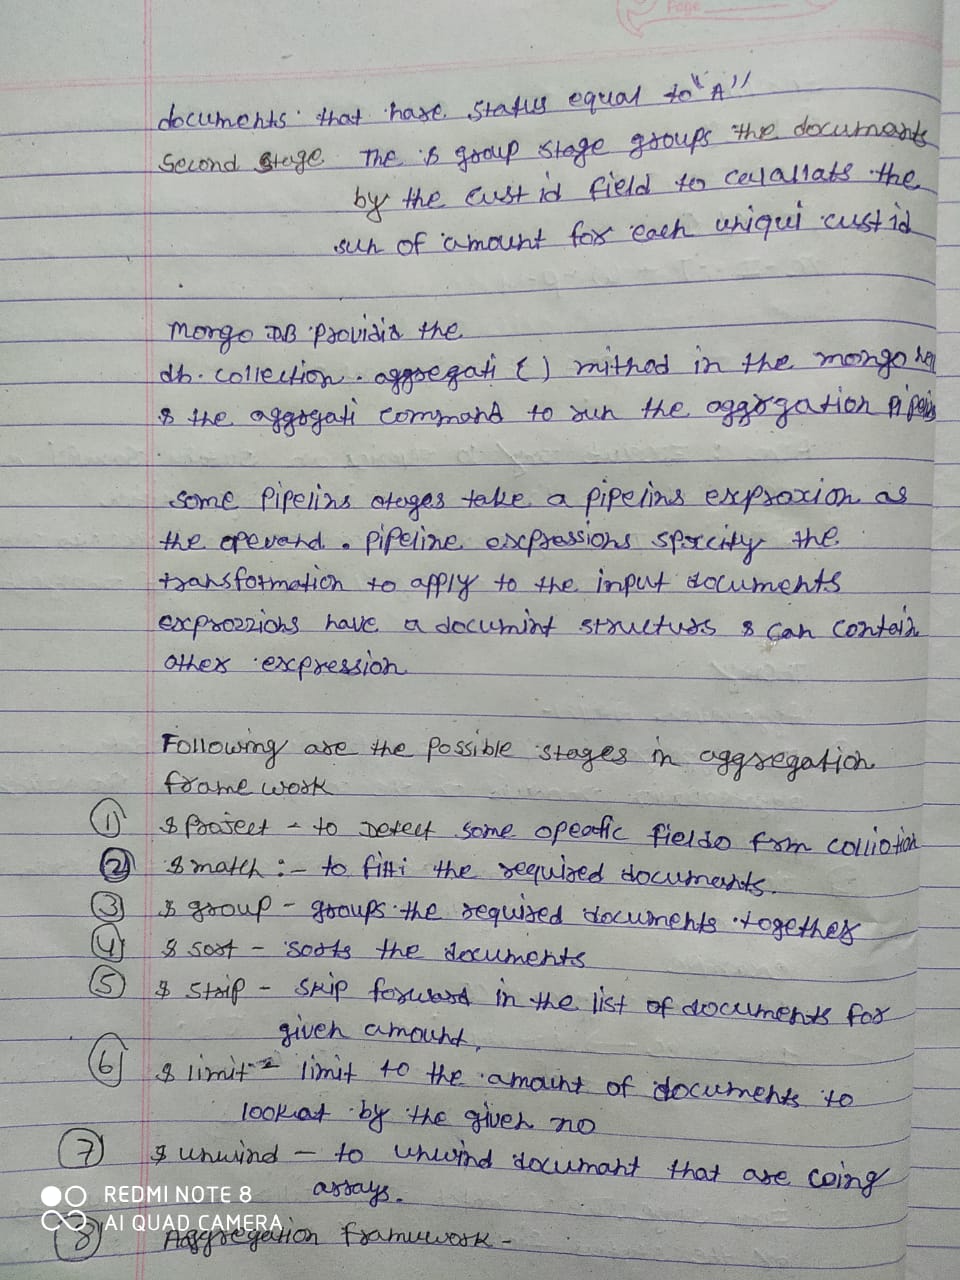 Page
documents that have status equal to "A"
Second Stage The $ group stage groups the documents
by the cust id field to the
sum of amount for each uniqui cust id
Mongo DB providis the
db. collection. aggregati () mithod in the mongo
& the aggrgati command to run the aggrgation
Some Pipelins stages take a pipelins expression as
the operand. Pipeline expressions spicity the
transformation to apply to the input documents
exprozzions have a documint structurs & can contain
other expression
Following are the possible stages in aggregation
frame work
① $ Project - to some fields from
② $ match :- to the required documents.
③ $ group - groups the required documents together
④ $ sort - sorts the documents
⑤ $ - skip forward in the list of documents for
given amount,
⑥ $ limit - limit to the amount of documents to
look at by the given no
⑦ $ unwind - to unwind documant that are coing
arrays.
REDMI NOTE 8
AI QUAD CAMERA
⑧ Aggregation framework -